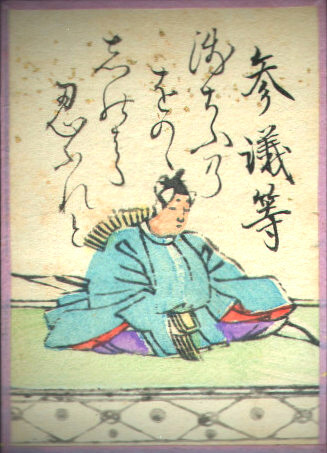 参議等
浅ちふ乃
をのゝ
しのはら
忍ふれと